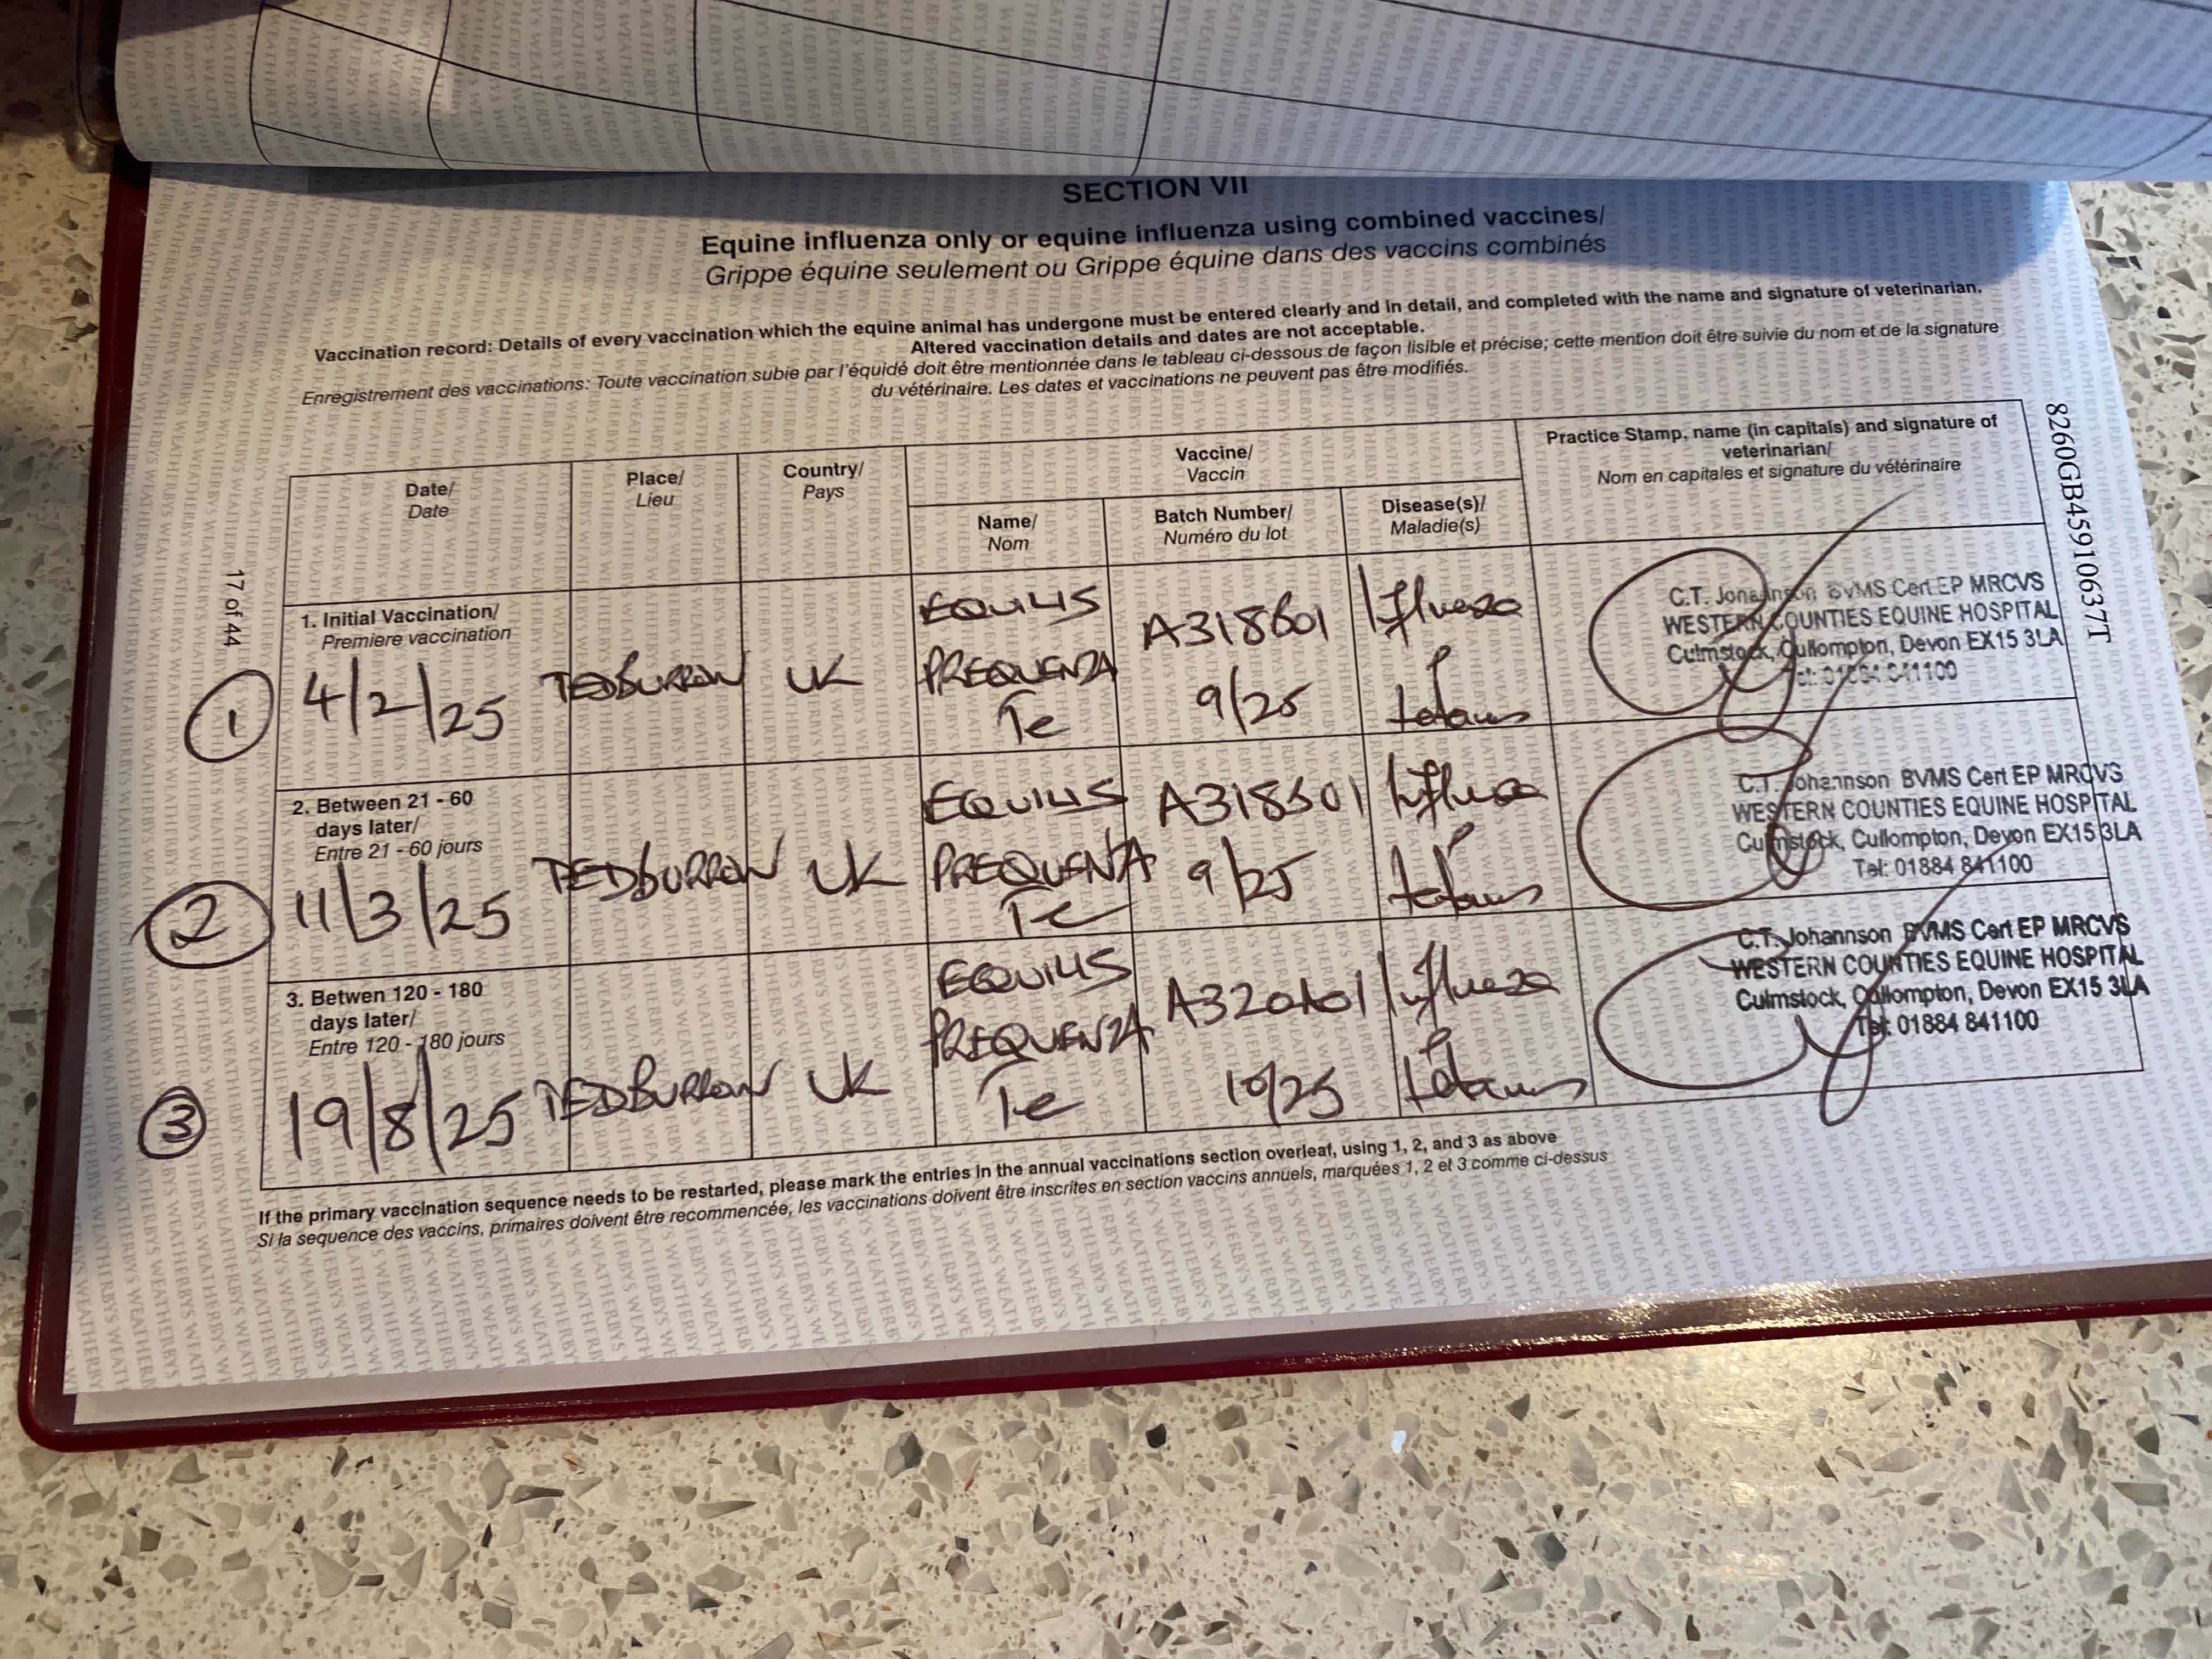 SECTION VII
Equine influenza only or equine influenza using combined vaccines/
Grippe équine seulement ou Grippe équine dans des vaccins combinés
Vaccination record: Details of every vaccination which the equine animal has undergone must be entered clearly and in detail, and completed with the name and signature of veterinarian.
Altered vaccination details and dates are not acceptable.
Enregistrement des vaccinations: Toute vaccination subie par l'équidé doit être mentionnée dans le tableau ci-dessous de façon lisible et précise; cette mention doit être suivie du nom et de la signature
du vétérinaire. Les dates et vaccinations ne peuvent pas être modifiés.
Date/
Date
Place/
Lieu
Country/
Pays
Vaccine/
Vaccin
Name/
Nom
Batch Number/
Numéro du lot
Disease(s)/
Maladie(s)
Practice Stamp, name (in capitals) and signature of
veterinarian/
Nom en capitales et signature du vétérinaire
8260GB459106377T
17 of 44
1. Initial Vaccination/
Premiere vaccination
1
4/2/25
TEDBURROW
UK
EQUILIS
PREQUENZA
Te
9/25
Influenza
tetanus
C.T. Johannson BVMS Cert EP MRCVS
WESTERN COUNTIES EQUINE HOSPITAL
Culmstock, Cullompton, Devon EX15 3LA
Tel: 01884 841100
2. Between 21 - 60
days later/
Entre 21 - 60 jours
2
11/3/25
TEDBURROW
UK
EQUILIS
PREQUENZA
Te
9/25
Influenza
tetanus
C.T. Johannson BVMS Cert EP MRCVS
WESTERN COUNTIES EQUINE HOSPITAL
Culmstock, Cullompton, Devon EX15 3LA
Tel: 01884 841100
3. Betwen 120 - 180
days later/
Entre 120 - 180 jours
3
19/8/25
TEDBURROW
UK
EQUILIS
PREQUENZA
Te
10/25
Influenza
tetanus
C.T. Johannson BVMS Cert EP MRCVS
WESTERN COUNTIES EQUINE HOSPITAL
Culmstock, Cullompton, Devon EX15 3LA
Tel: 01884 841100
If the primary vaccination sequence needs to be restarted, please mark the entries in the annual vaccinations section overleaf, using 1, 2, and 3 as above
Si la sequence des vaccins, primaires doivent être recommencée, les vaccinations doivent être inscrites en section vaccins annuels, marquées 1, 2 et 3 comme ci-dessus